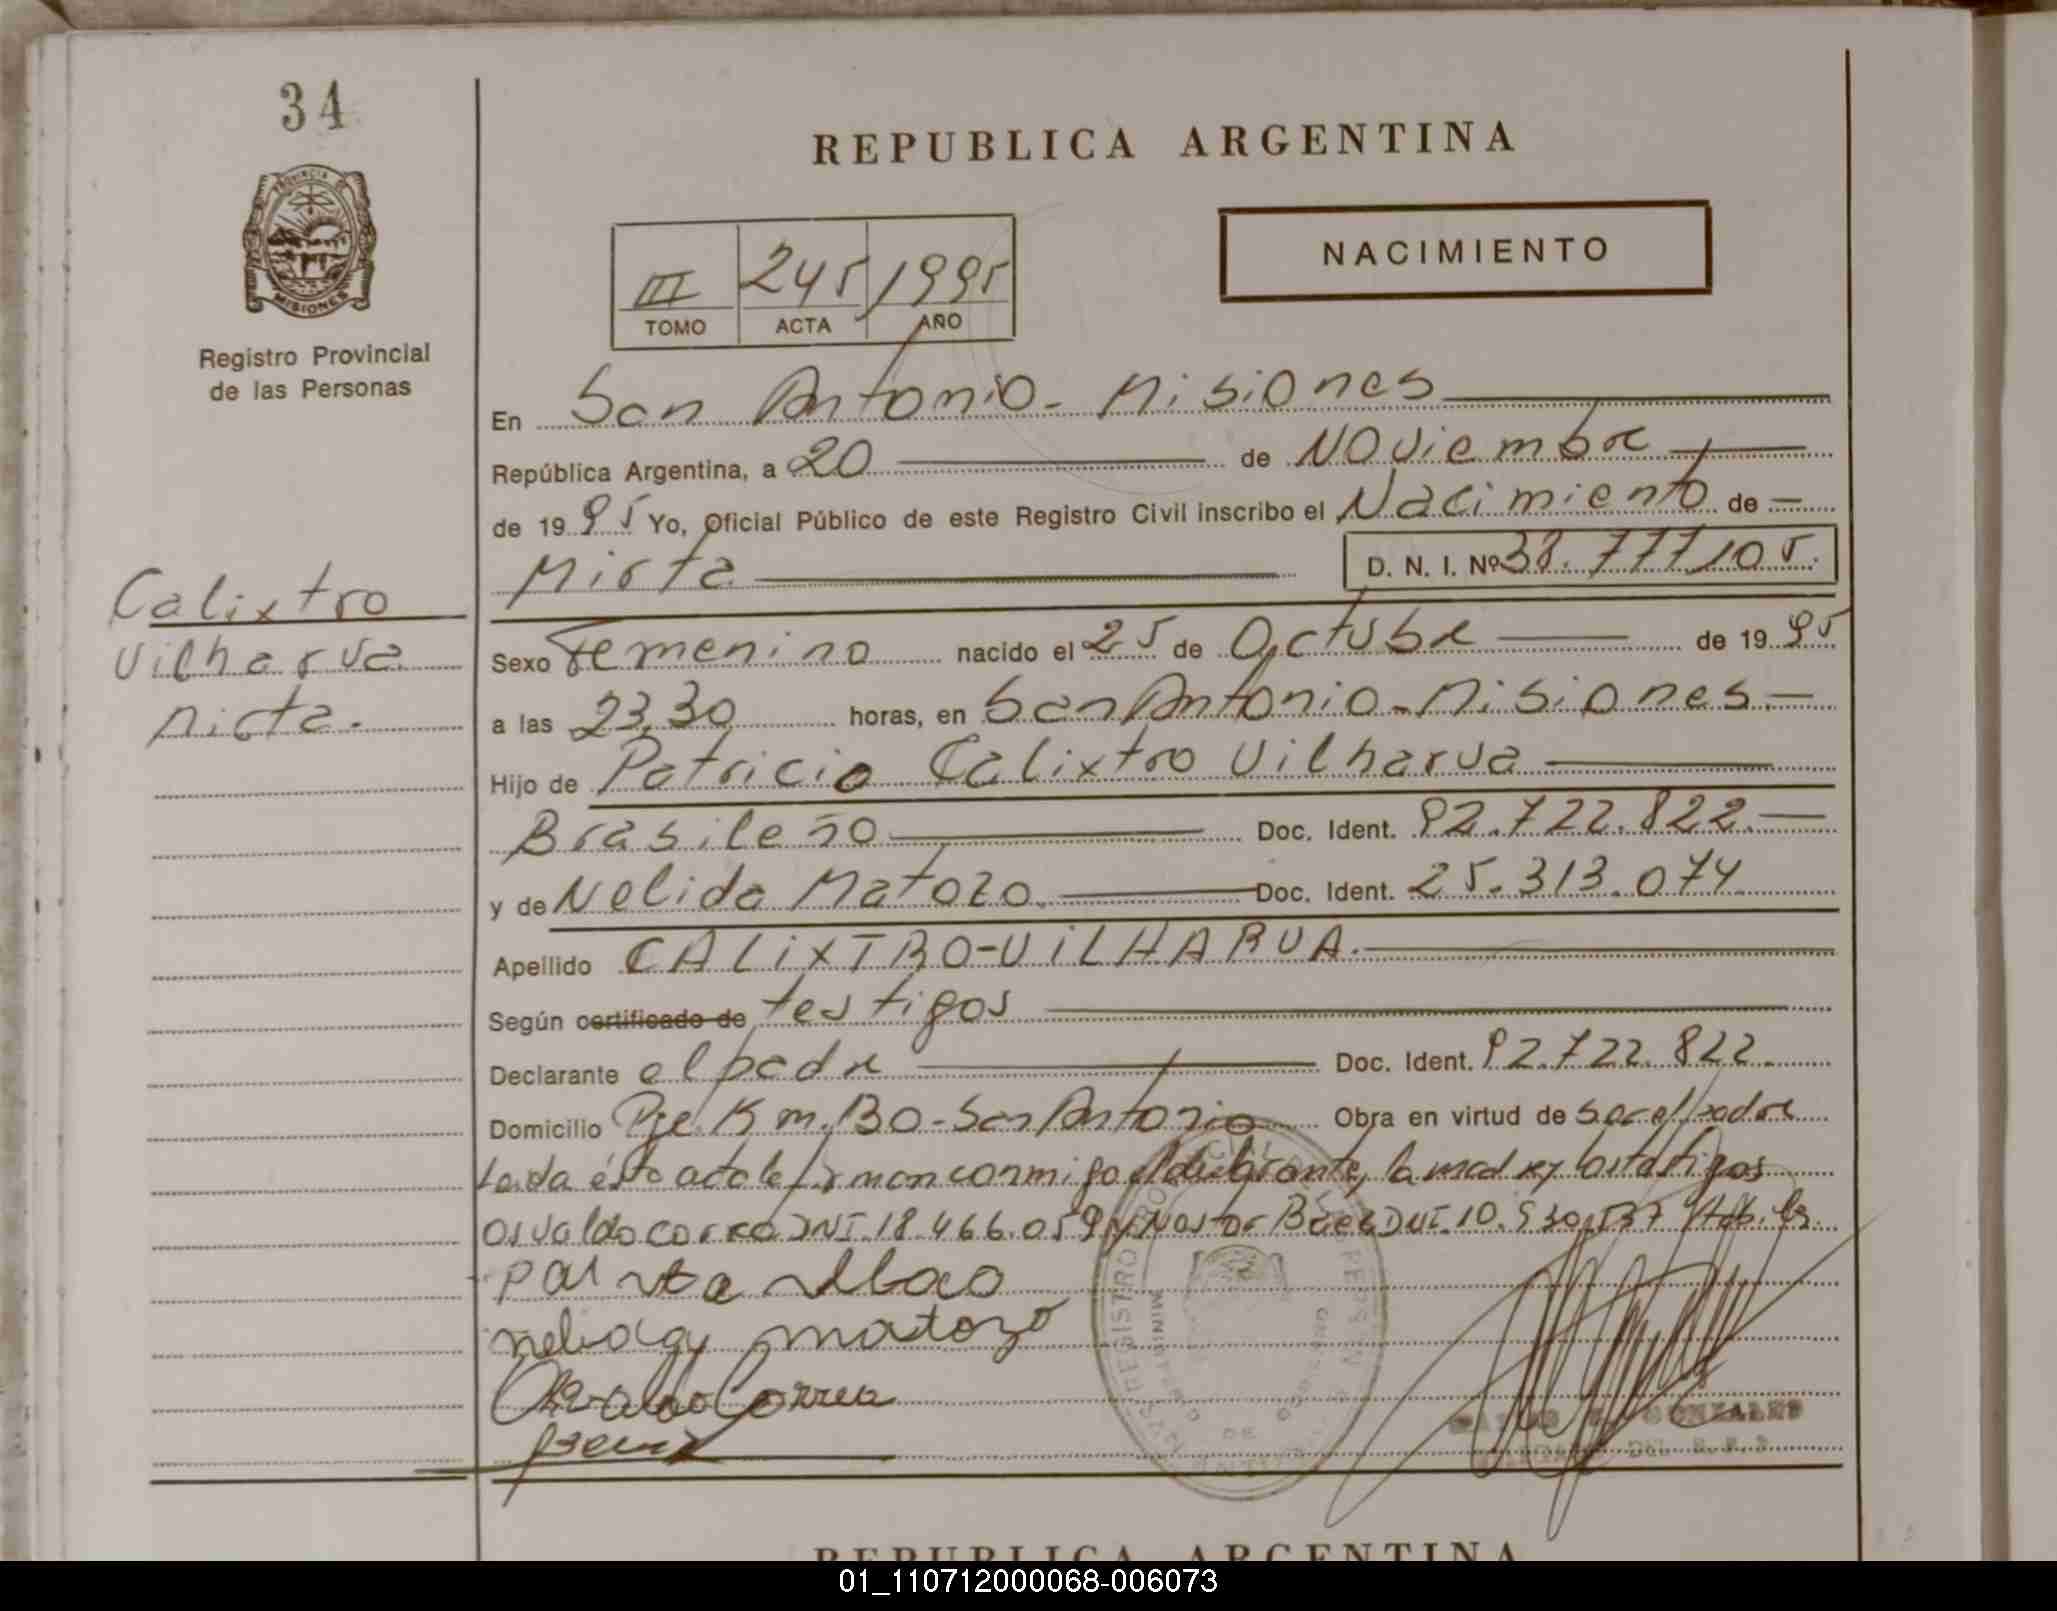 34
REPUBLICA ARGENTINA
PROVINCIA DE
MISIONES
Registro Provincial
de las Personas
NACIMIENTO
III 245 1995
TOMO ACTA AÑO
En San Antonio - Misiones
República Argentina, a 20 de Noviembre
de 1995 Yo, Oficial Público de este Registro Civil inscribo el Nacimiento de
Mirta D. N. I. Nº 38.777.105.
Calixtro
Vilharva
Mirta.
Sexo Femenino nacido el 25 de Octubre de 1995
a las 23,30 horas, en San Antonio - Misiones.
Hijo de Patricio Calixtro Vilharva
Brasileño Doc. Ident. 92.722.822.
y de Nelida Matozo. Doc. Ident. 25.313.074
Apellido CALIXTRO-VILHARVA.
Según certificado de testigos
Declarante el padre Doc. Ident. 92.722.822.
Domicilio Pje. Km. 130 - San Antonio Obra en virtud de ser el padre
Leida ésta acta la firman conmigo el declarante, la madre y los testigos
Osvaldo Correa DNI. 18.466.059 y Nestor DNI. 10.930.537
nelida matozo
Osvaldo Correa
GONZALES
REPUBLICA ARGENTINA
01_110712000068-006073